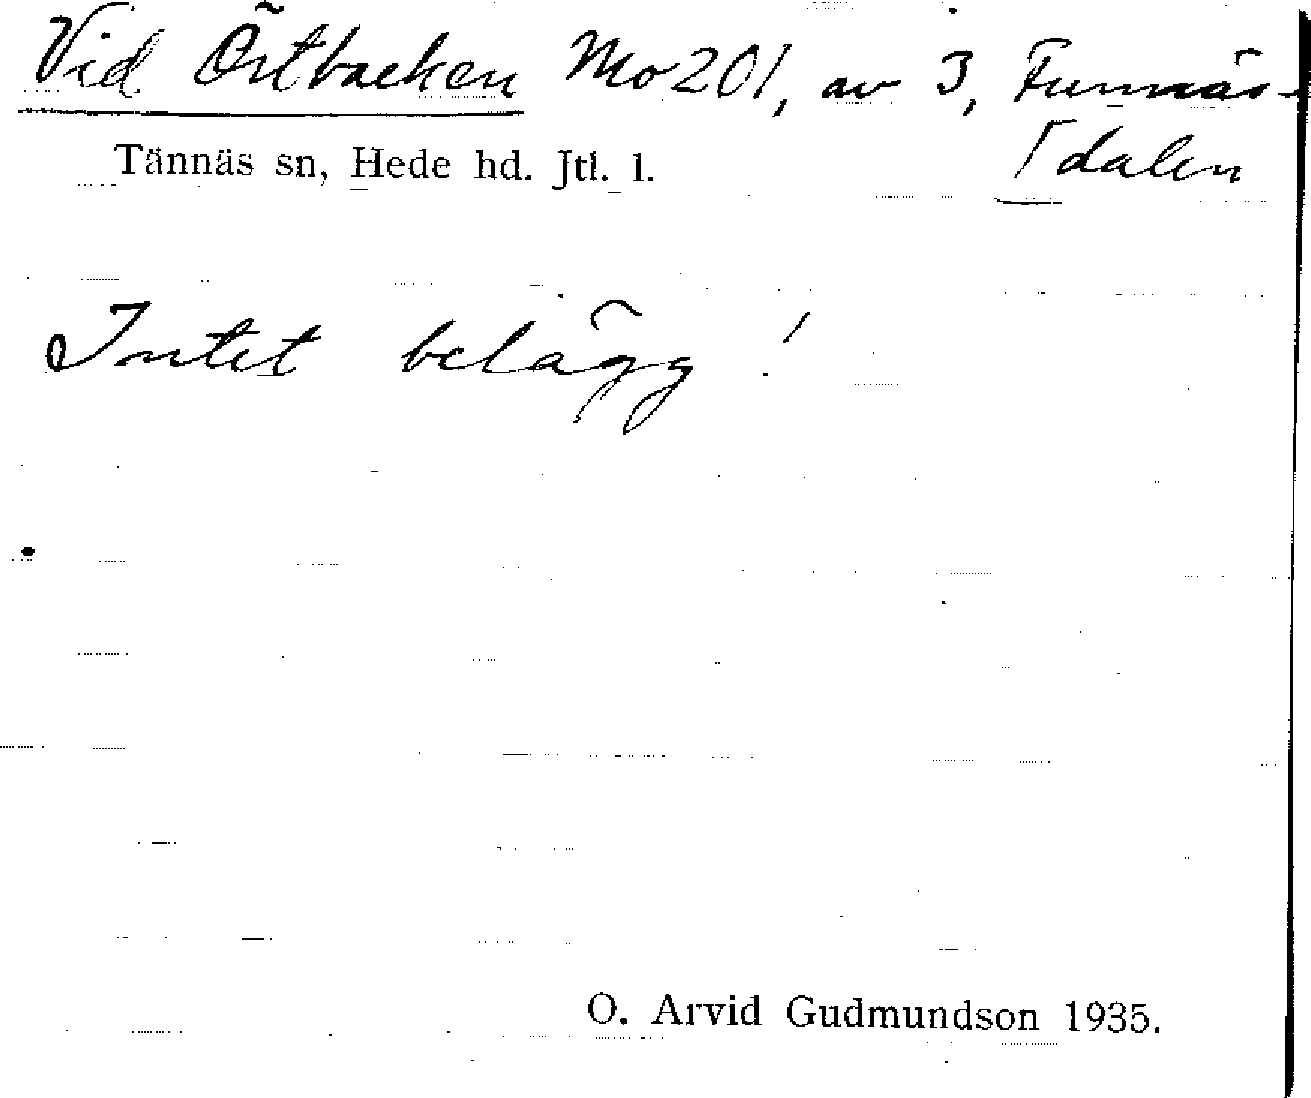 Vid Örtbacken Mo 201, av 3, Funnäs-
Tännäs sn, Hede hd. Jtl. l. [dalen
Intet belägg!
O. Arvid Gudmundson 1935.